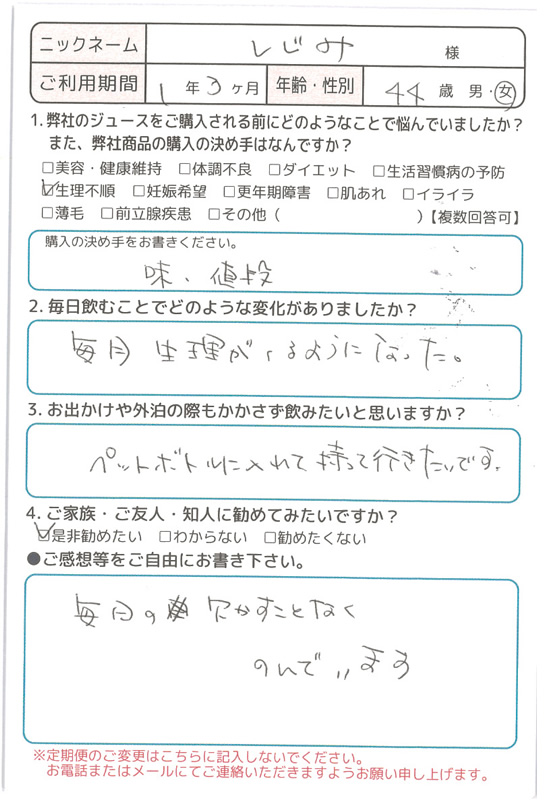 ニックネーム しじみ 様
ご利用期間 1年3ヶ月 年齢・性別 44歳 男・女
1. 弊社のジュースをご購入される前にどのようなことで悩んでいましたか？
また、弊社商品の購入の決め手はなんですか？
□美容・健康維持 □体調不良 □ダイエット □生活習慣病の予防
☑生理不順 □妊娠希望 □更年期障害 □肌あれ □イライラ
□薄毛 □前立腺疾患 □その他（ ）【複数回答可】
購入の決め手をお書きください。
味、値段
2. 毎日飲むことでどのような変化がありましたか？
毎月生理がくるようになった。
3. お出かけや外泊の際もかかさず飲みたいと思いますか？
ペットボトルに入れて持って行きたいです。
4. ご家族・ご友人・知人に勧めてみたいですか？
☑是非勧めたい □わからない □勧めたくない
●ご感想等をご自由にお書き下さい。
毎日の 欠かすことなく
のんでいます
※定期便のご変更はこちらに記入しないでください。
お電話またはメールにてご連絡いただきますようお願い申し上げます。